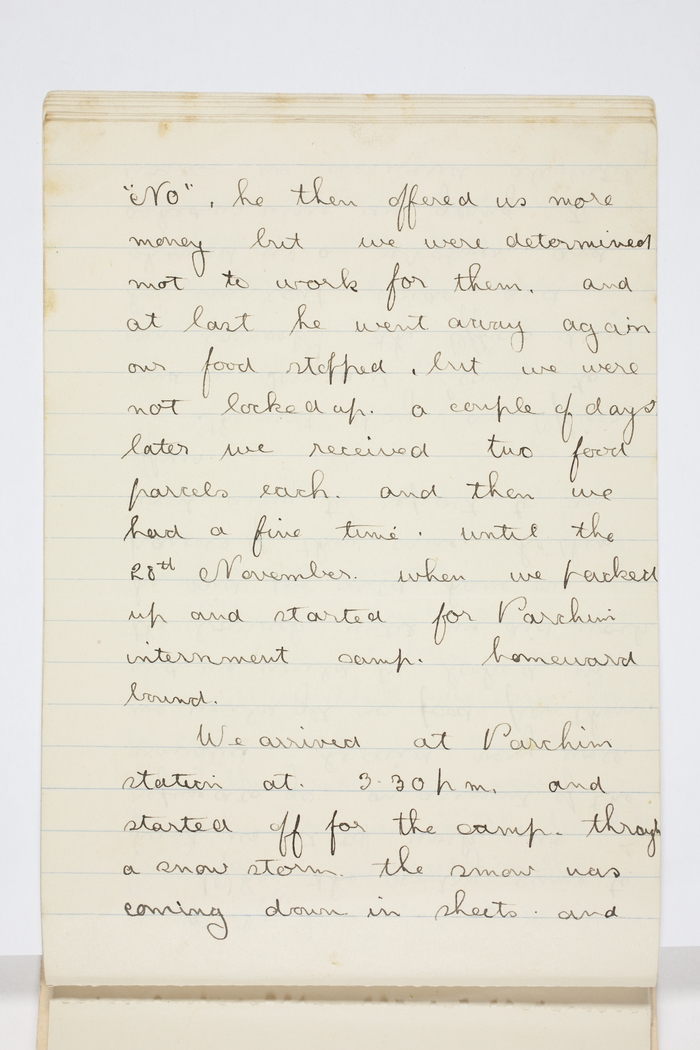 "No", he then offered us more
money but we were determined
not to work for them. and
at last he went away again
our food stopped, but we were
not locked up. a couple of days
later we received two food
parcels each. and then we
had a fine time. until the
28th November. when we packed
up and started for Parchim
internment camp. homeward
bound.
We arrived at Parchim
station at. 3.30 p m. and
started off for the camp. through
a snow storm. the snow was
coming down in sheets. and